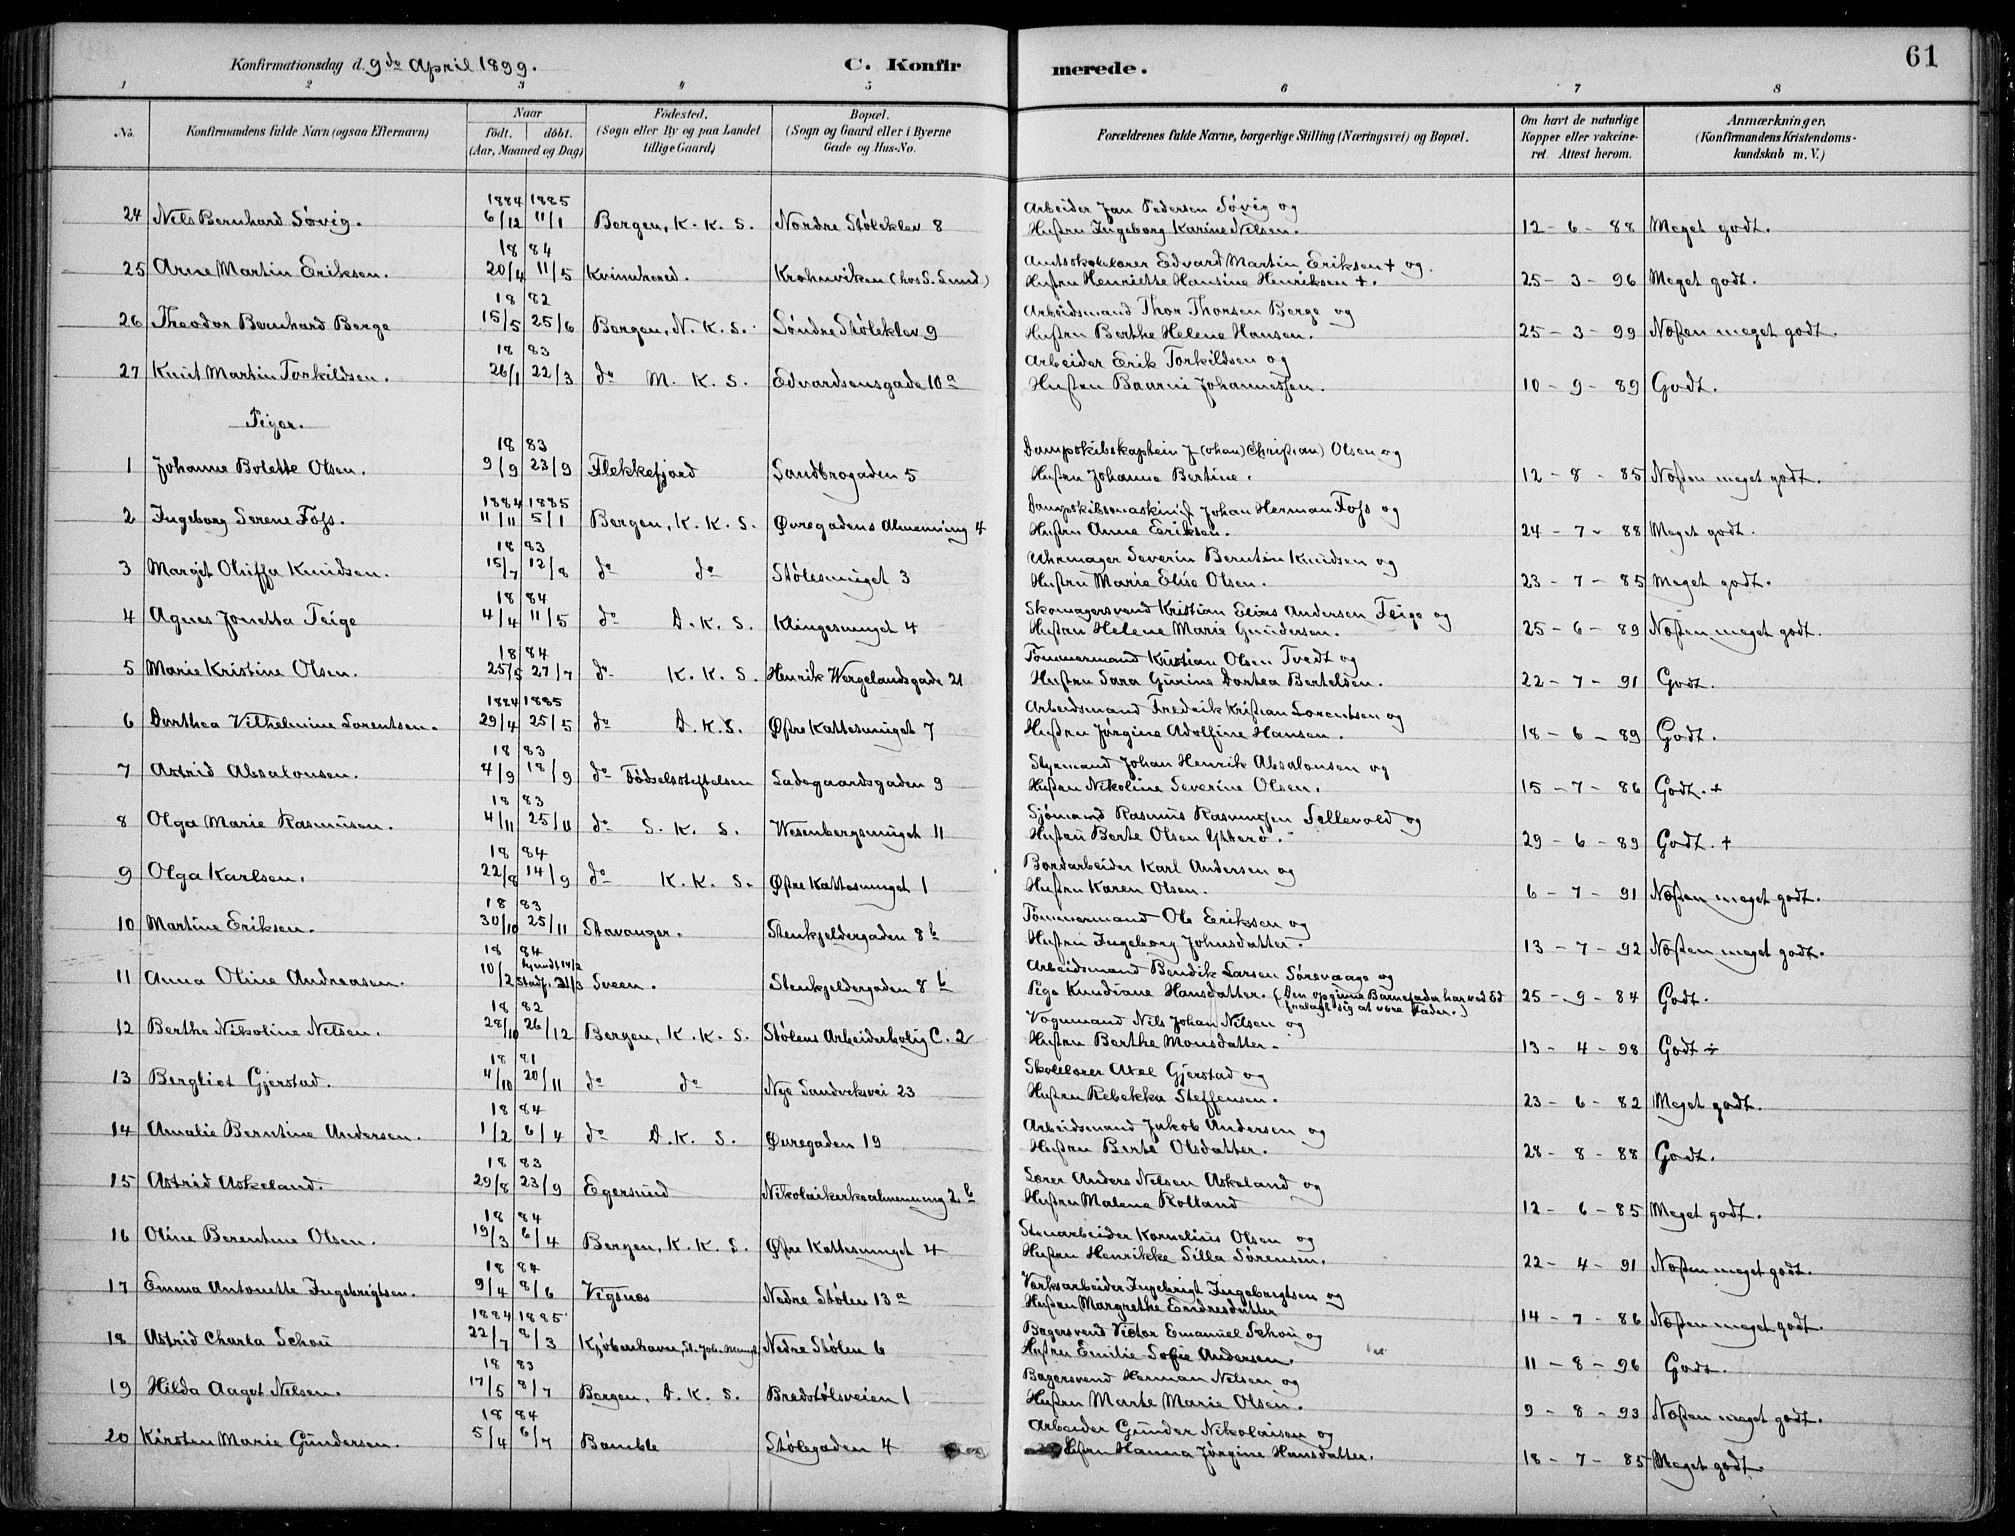 61
Konfirmationsdag d. 9de April 1899. C. Konfirmerede.
1 2 3 4 5 6 7 8
No. Konfirmandens fulde Navn (ogsaa Efternavn) Naar født. døbt. (Aar, Maaned og Dag) Fødested. (Sogn eller By og paa Landet tillige Gaard) Bopæl. (Sogn og Gaard eller i Byerne Gade og Hus-No. Forældrenes fulde Navne, borgerlige Stilling (Næringsvei) og Bopæl. Om havt de naturlige Kopper eller vakcineret. Attest herom. Anmærkninger, (Konfirmandens Kristendomskundskab m. V.)
1884 1885 Arbeider Jan Pedersen Søvig og
24 Nils Bernhard Søvig. 6/12 11/1 Bergen, K. K. S. Nordre Støleklev 8 Hustru Ingeborg Karine Nilsen. 12-6-88 Meget godt.
18 84 Amtsskolelærer Edvard Martin Eriksen + og
25 Arne Martin Eriksen. 20/4 11/5 Kvinnhered. Krohnviken (hos S. Lund) Hustru Henriette Hansine Henriksen +. 25-3-96 Meget godt.
18 82 Arbeidsmand Thor Thorsen Berge og
26 Theodor Bernhard Berge 15/5 25/6 Bergen, N. K. S. Søndre Støleklev 9 Hustru Berthe Helene Hansen. 25-3-99 Næsten meget godt.
18 83 Arbeider Erik Torkildsen og
27 Knut Martin Torkildsen. 26/1 22/3 do M. K. S. Edvardsensgade 10a Hustru Baarni Johannessen. 10-9-89 Godt.
Piger.
18 83 Dampskibskaptein J(ohan) Christian) Olsen og
1 Johanne Bolette Olsen. 9/9 23/9 Flekkefjord Sandbrogaden 5 Hustru Johanne Bertine. 12-8-85 Næsten meget godt.
1884 1885 Dampskibsmaskinist Johan Herman Foss og
2 Ingeborg Serene Foss. 11/11 5/1 Bergen, K. K. S. Øvregadens Almenning 4 Hustru Anne Eriksen. 24-7-88 Meget godt.
18 83 Uhrmager Severin Berntin Knudsen og
3 Marget Oluffa Knudsen. 15/7 12/8 do do Stølesmuget 3 Hustru Marie Elise Olsen. 23-7-85 Meget godt.
18 84 Skomagersvend Kristian Elias Andersen Teige og
4 Agnes Jonetta Teige 4/4 11/5 do D. K. S. Klingesmuget 4 Hustru Helene Marie Gundersen. 25-6-89 Næsten meget godt.
18 84 Tømmermand Kristian Olsen Tvedt og
5 Marie Kristine Olsen. 25/5 27/7 do K. K. S. Henrik Wergelandsgade 21 Hustru Sara Gurine Dortea Bertelsen. 22-7-91 Godt.
1884 1885 Arbeidsmand Fredrik Kristian Lorentsen og
6 Dorthea Vilhelmine Lorentsen. 29/4 25/5 do D. K. S. Østre Kattesmuget 7 Hustru Jørgine Adolfine Hansen. 18-6-89 Godt.
18 83 Styrmand Johan Henrik Absalonsen og
7 Astrid Absalonsen. 4/9 18/9 do Fødselsstiftelsen Ladegaardsgaden 9 Hustru Nikoline Severine Olsen. 15-7-86 Godt. +
18 83 Sjømand Rasmus Rasmussen Sellevold og
8 Olga Marie Rasmusen. 4/11 25/11 do S. K. S. Wesenbergsmuget 11 Hustru Berte Olsen Ytterø. 29-6-89 Godt. +
18 84 Bordarbeider Karl Andersen og
9 Olga Karlsen. 22/8 14/9 do K. K. S. Østre Kattesmuget 1 Hustru Karen Olsen. 6-7-91 Næsten meget godt.
18 83 Tømmermand Ole Eriksen og
10 Martine Eriksen. 30/10 25/11 Stavanger. Stenkjeldergaden 8b Hustru Ingeborg Johnsdatter. 13-7-92 Næsten meget godt.
18 84 Arbeidsmand Bendik Larsen Sørevaage og
11 Anna Oline Andreasen. 10/2 hjemdt. 14/2 Stadf. 21/3 Sveen. Stenkjeldergaden 8b Pige Kundiane Hansdatter. (Den opgivne Barnefader har ved Ed fralagt sig at være Fader.) 25-9-84 Godt.
18 82 Vognmand Nils Johan Nilsen og
12 Berthe Nikoline Nilsen. 28/10 26/12 Bergen, K. K. S. Stølens Arbeiderbolig C. 2 Hustru Berthe Monsdatter. 13-4-98 Godt ÷
18 81 Skolelærer Axel Gjerstad og
13 Bergliot Gjerstad. 4/10 20/11 do do Nye Sandviksvei 23 Hustru Rebekka Steffensen. 23-6-82 Meget godt.
18 84 Arbeidsmand Jakob Andersen og
14 Amalie Berntine Andersen. 1/2 6/4 do D. K. S. Øvregaden 19 Hustru Berte Olsdatter. 28-8-88 Godt.
18 83 Lærer Anders Nilsen Askeland og
15 Astrid Askeland. 29/8 23/9 Egersund Nikolaikirkealmenning 2b Hustru Malene Rolland 12-6-85 Meget godt.
18 84 Stuarbeider Kornelius Olsen og
16 Oline Berentine Olsen. 19/3 6/4 Bergen, K. K. S. Østre Kattesmuget 4 Hustru Henrikke Silla Sørensen. 22-4-91 Næsten meget godt.
18 84 Værksarbeider Ingebrigt Ingebrigtsen og
17 Emma Antonette Ingebrigtsen. 9/4 8/6 Vigsnes Nedre Stølen 13a Hustru Margrethe Endresdatter 14-7-86 Næsten meget godt.
1884 1885 Bagersvend Victor Emanuel Schou og
18 Astrid Charla Schou 22/7 8/3 Kjøbenhavn, St. Joh. Nedre Stølen 6 Hustru Emilie Sofie Andersen. 11-8-96 Godt.
18 83 Bagersvend Herman Nilsen og
19 Hilda Aagot Nilsen. 17/5 8/7 Bergen, D. K. S. Bredstølsveien 1 Hustru Marte Marie Olsen. 9-8-93 Næsten meget godt.
18 84 Arbeider Gunder Nikolaisen og
20 Kirsten Marie Gundersen. 5/4 6/7 Bamble Stølegaden 4 Hustru Hanna Jørgine Hansdatter. 18-7-85 Meget godt.